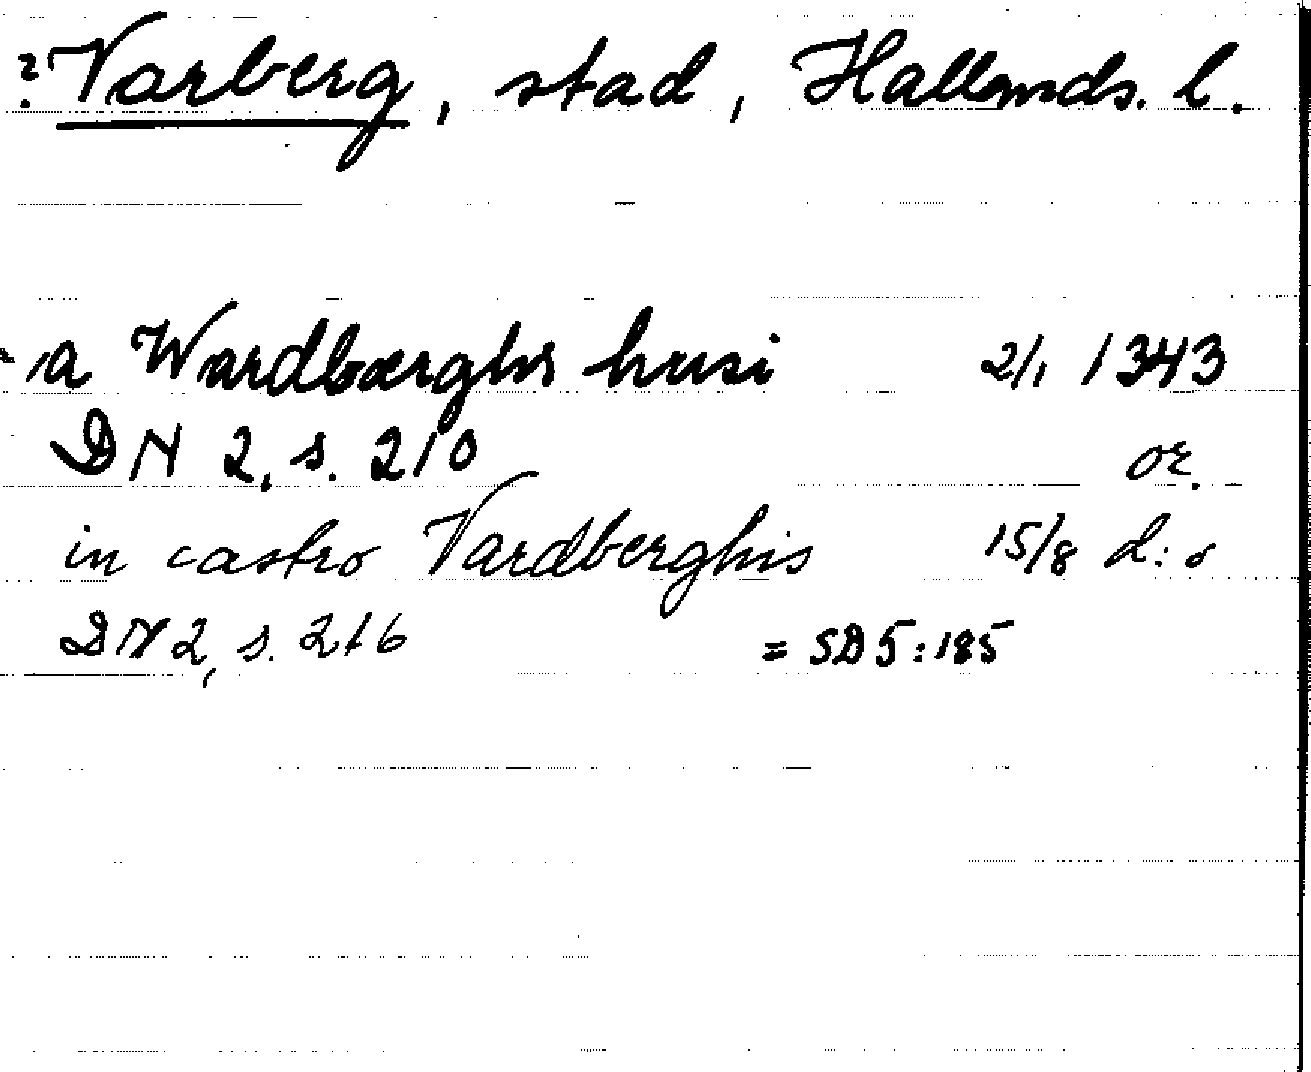 ?Varberg, stad, Hallands. l.
a Wardbærghs husi 2/1 1343
DN 2, s. 210 or.
in castro Vardberghis 15/8 d:o
DN 2, s. 216 = SD 5:185